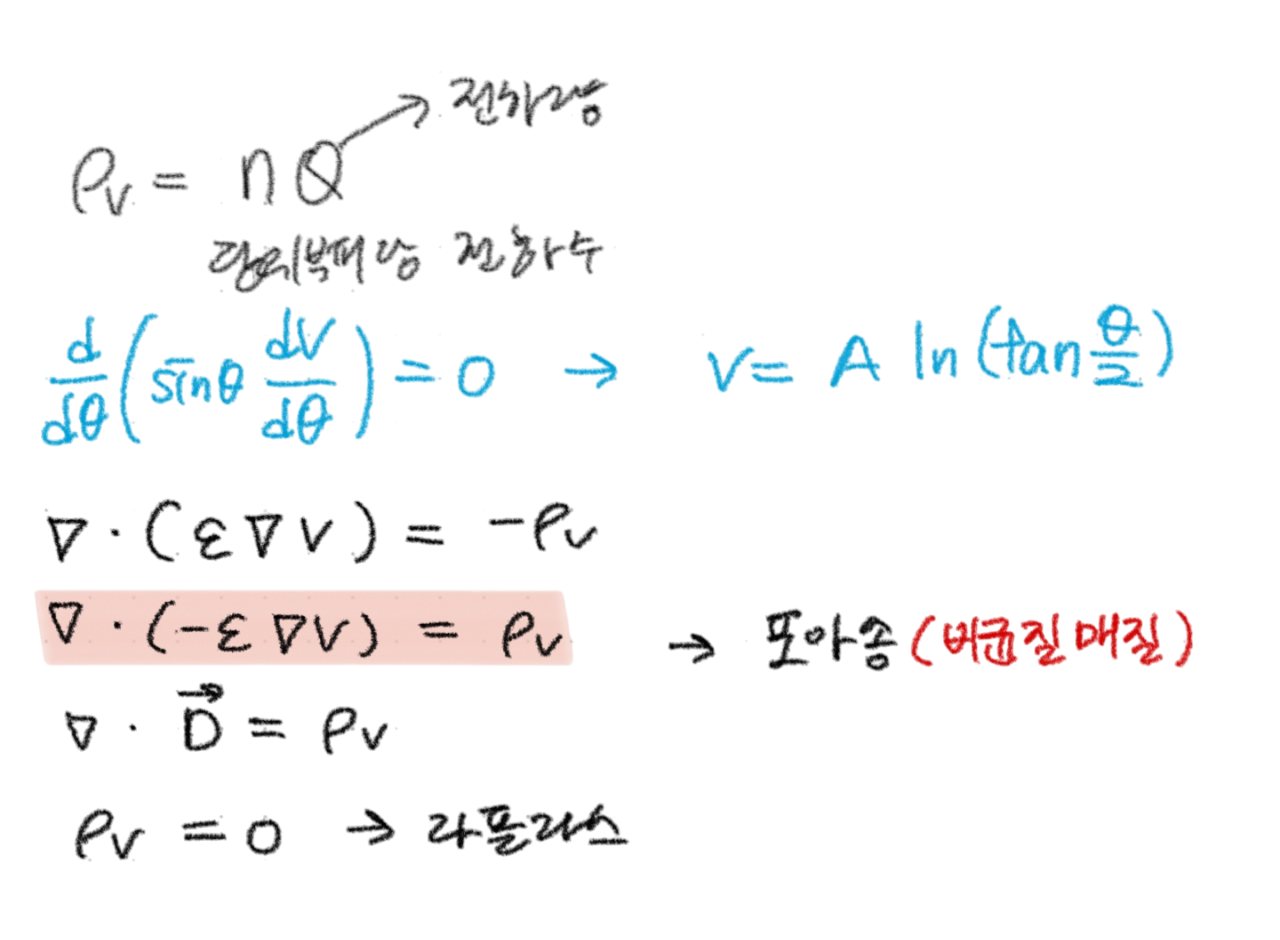 전하량
ρv = nQ
단위부피당 전하수
d/dθ (sinθ dV/dθ) = 0 → V = A ln(tan θ/2)
∇ · (ε∇V) = -ρv
∇ · (-ε∇V) = ρv → 포아송 (비균질 매질)
∇ · D⃗ = ρv
ρv = 0 → 라플라스